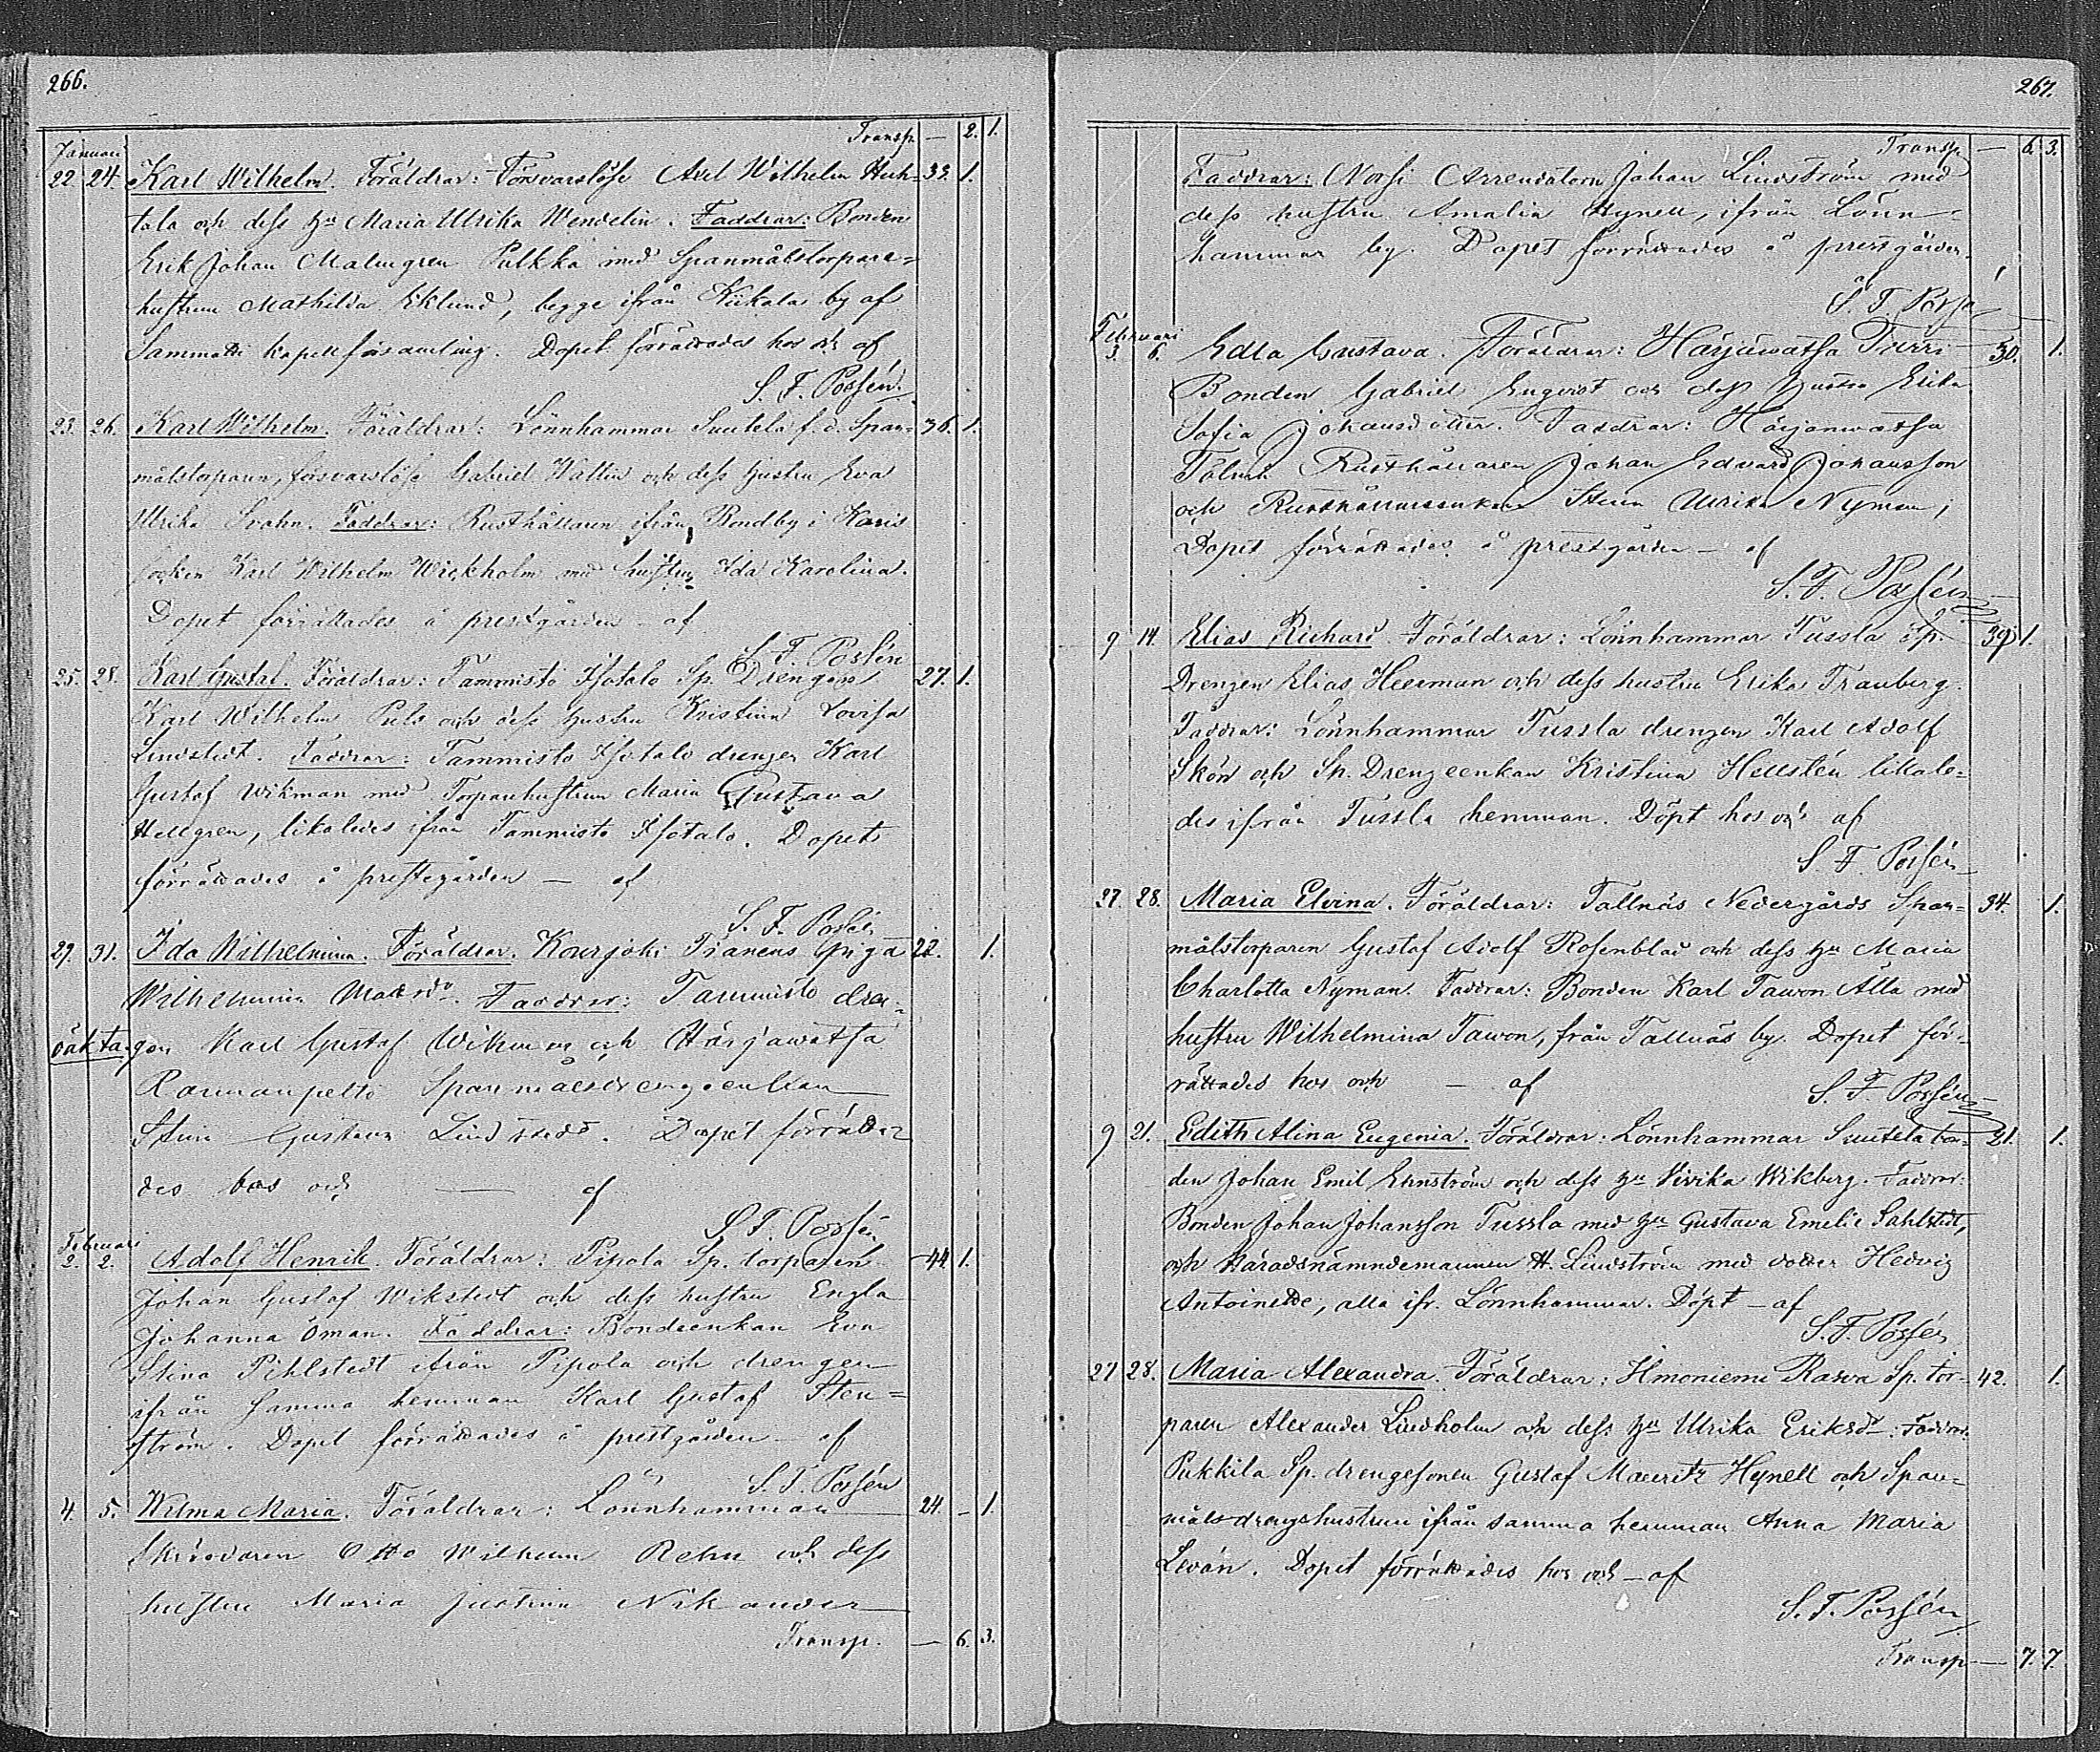 266.
Transp. — 2. 1.
Januari
22 24. Karl Wilhelm. Föräldrar: Försvarslöse Axel Wilhelm Huh= 33. 1.
tala och dess hu Maria Ulrika Wendelin. Faddrar: Bonden
Erik Johan Malmgren Pulkka med Spanmålstorpare=
hustrun Mathilda Eklund, begge ifrån Kiikala by af
Sammatti kapellförsamling. Dopet förrättades hos och af
S. F. Possén.
23. 26. Karl Wilhelm. Föräldrar: Lönnhammar Suutela f. d. Span= 36. 1.
målstorparen, försvarslöse Gabriel Wallin och dess hustru Eva
Ulrika Svahn. Faddrar: Rusthållaren ifrån Bondby i Karis
socken Karl Wilhelm Wickholm med hustru Ida Karolina.
Dopet förrättades å prestgården – af
S. F. Possén
25. 28. Karl Gustaf. Föräldrar: Tammisto Isotalo Sp. Drengen 27. 1.
Karl Wilhelm Puls och dess hustru Kristina Lovisa
Lindstedt. Faddrar: Tammisto Isotalo drengen Karl
Gustaf Wikman med Torparehustrun Maria Gustava
Hellgren, likaledes ifrån Tammisto Isotalo. Dopet
förrättades å prestegården — af
S. F. Possén
29. 31. Ida Wilhelmina. Föräldrar. Kourjoki Pigan 22. 1.
Wilhelmina Mattsdr. Faddrar: Tammisto dren=
oäkta. gen Karl Gustaf Wikman och Härjäwatsa
Raumanpelto Spanmålsdrengeenkan
Stina Gustava Lindstedt. Dopet förrätta=
des hos och — af
S. F. Possén
Februari
2. 2. Adolf Henrik. Föräldrar: Pipola Sp. torparen 44. 1.
Johan Gustaf Wikstedt och dess hustru Engla
Johanna Öman. Faddrar: Bondeenkan Eva
Stina Pihlstedt ifrån Pipola och drengen
ifrån samma hemman Karl Gustaf Sten=
ström. Dopet förrättades å prestgården – af
S. F. Possén
4. 5. Wilma Maria. Föräldrar: Lönnhammar 24. – 1.
Skräddaren Otto Wilhelm Rehn och dess
hustru Maria Justina Nikander
Transp. — 6. 3.
267.
Transp. — 6. 3.
Faddrar: Norsi Arrendatorn Johan Lindström med
dess hustru Amalia Hynell, ifrån Lönn=
hammar by. Dopet förrättades å prestgården.
S. F. Possén
Februari
3. 6. Edla Gustava. Föräldrar: Härjäwatsa 30. 1.
Bonden Gabriel Enqvist och dess hustru Erika
Sofia Johansdotter. Faddrar: Härjänwatsa
Rusthållaren Johan Edvard Johansson
och Rusthållareenkan Stina Ulrika Nyman;
Dopet förrättades å prestgården — af
S. F. Possén
9 14. Elias Richard. Föräldrar: Lönnhammar Tussla Sp. 39 1.
Drengen Elias Heerman och dess hustru Erika Tranberg.
Faddrar: Lönnhammar Tussla drengen Karl Adolf
Skön och Sp. Drengeenkan Kristina Hellstén likale=
des ifrån Tussla hemman. Döpt hos och af
S. F. Possén
27. 28. Maria Elvina. Föräldrar: Tallnäs Nedergårds Span= 34. 1.
målstorparen Gustaf Adolf Rosenblad och dess hu Maria
Charlotta Nyman. Faddrar: Bonden Karl Tawon Alla med
hustru Wilhelmina Tawon, från Tallnäs by. Dopet för=
rättades hos och — af
S. F. Possén
9 21. Edith Alina Eugenia. Föräldrar: Lönnhammar Suutela bon= 21. 1.
den Johan Emil Ehnström och dess hu Vivika Wikberg. Faddrar:
Bonden Johan Johansson Tussla med hu Gustava Emelie Sahlstedt,
och Häradsnämndemannen H. Lindström med dotter Hedvig
Antoinette, alla ifr. Lönnhammar. Döpt – af
S. F. Possén
27 28. Maria Alexandra. Föräldrar: Ilmoniemi Rasva Sp. tor- 42. 1.
paren Alexander Lindholm och dess hu Ulrika Eriksdr. Faddrar.
Pukkila Sp. drengesonen Gustaf Mauritz Hynell och Span=
målsdrengshustrun ifrån samma hemman Anna Maria
Levón. Dopet förrättades hos och – af
S. F. Possén
Transp — 7. 7.